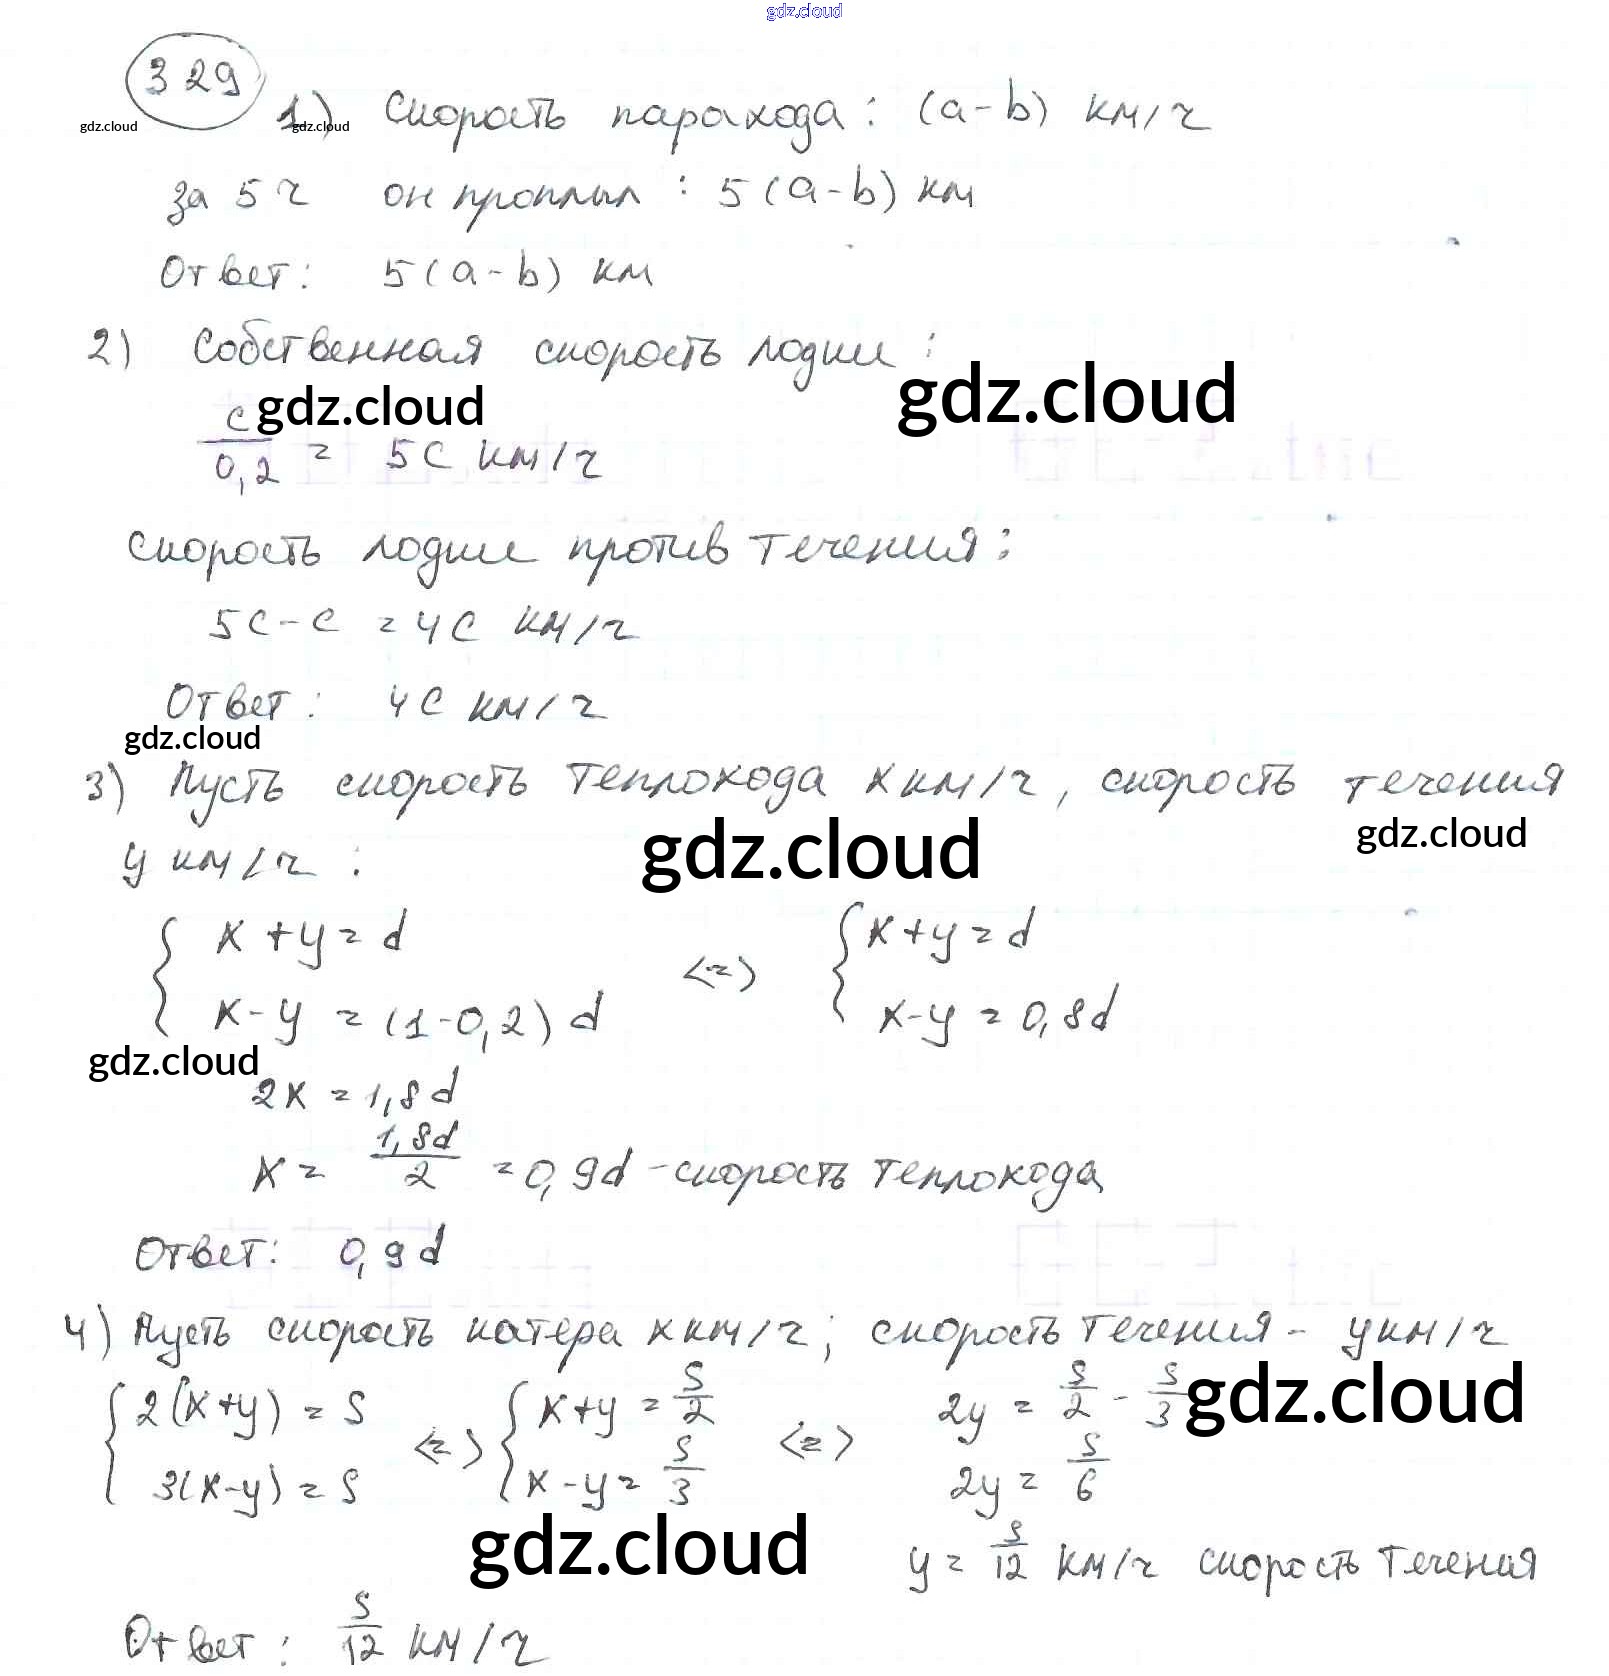 gdz.cloud
329
gdz.cloud
gdz.cloud
1) Скорость парахода: (a-b) км/ч
за 5 ч он проплыл: 5(a-b) км
Ответ: 5(a-b) км
2) Собственная скорость лодки:
gdz.cloud
gdz.cloud
c/0,2 = 5c км/ч
скорость лодки против течения:
5c-c = 4c км/ч
Ответ: 4c км/ч
gdz.cloud
3) Пусть скорость теплохода x км/ч, скорость течения
gdz.cloud
gdz.cloud
y км/ч:
{ x+y=d <=> { x+y=d
x-y = (1-0,2)d x-y = 0,8d
gdz.cloud
2x = 1,8d
x = 1,8d/2 = 0,9d - скорость теплохода
Ответ: 0,9d
4) Пусть скорость катера x км/ч; скорость течения - y км/ч
{ 2(x+y) = S <=> { x+y = S/2 <=> 2y = S/2 - S/3
gdz.cloud
3(x-y) = S x-y = S/3 2y = S/6
gdz.cloud
y = S/12 км/ч скорость течения
Ответ: S/12 км/ч